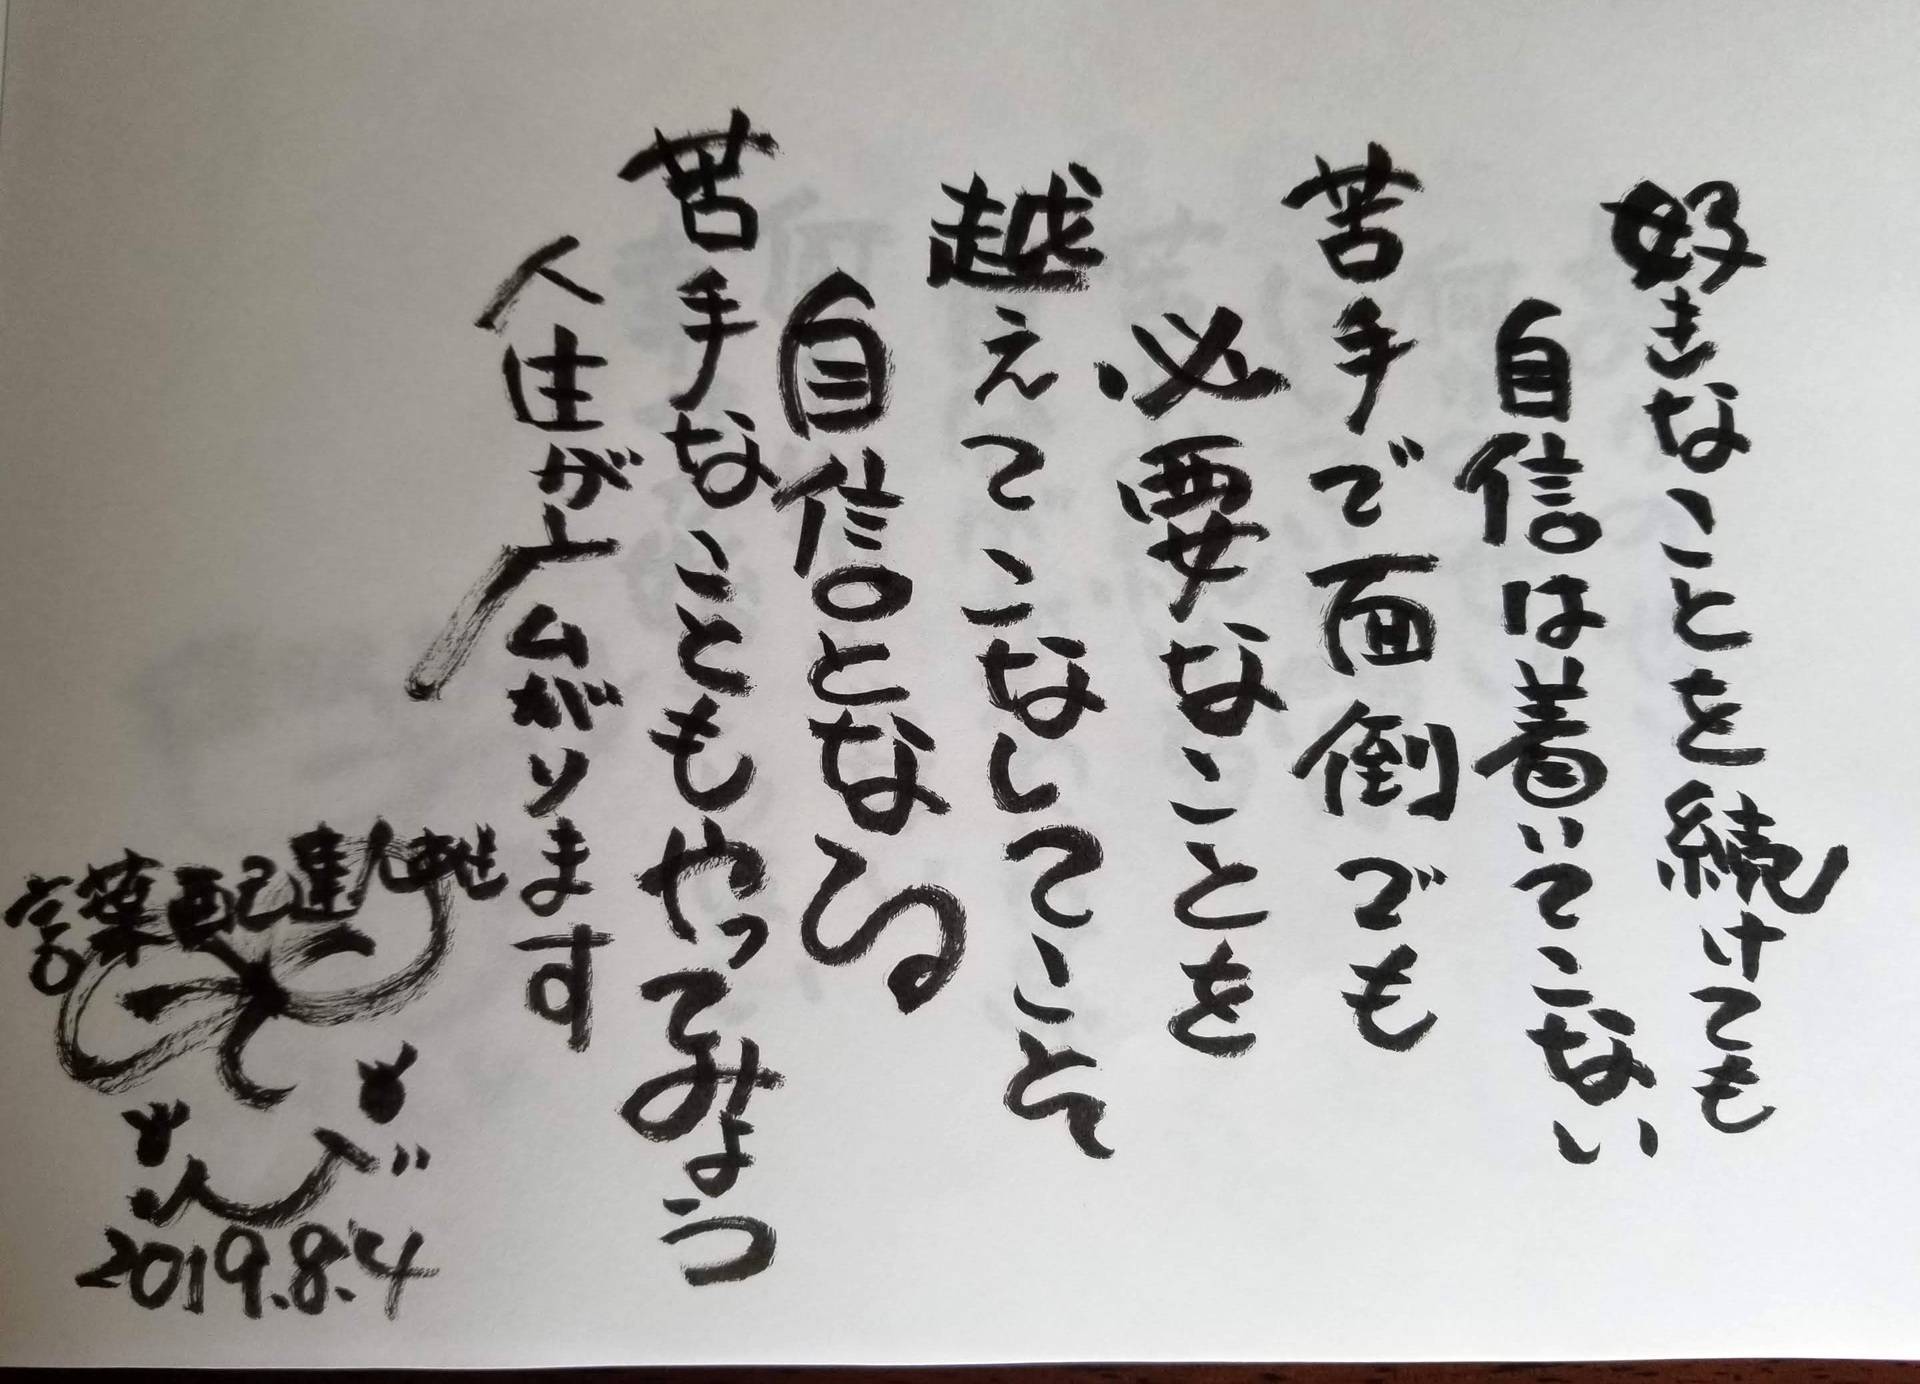 好きなことを続けても
自信は着いてこない
苦手で面倒でも
必要なことを
越えてこなしてこそ
自信となる
苦手なこともやってみよう
人生が広がります
言葉配達人
2019.8.4